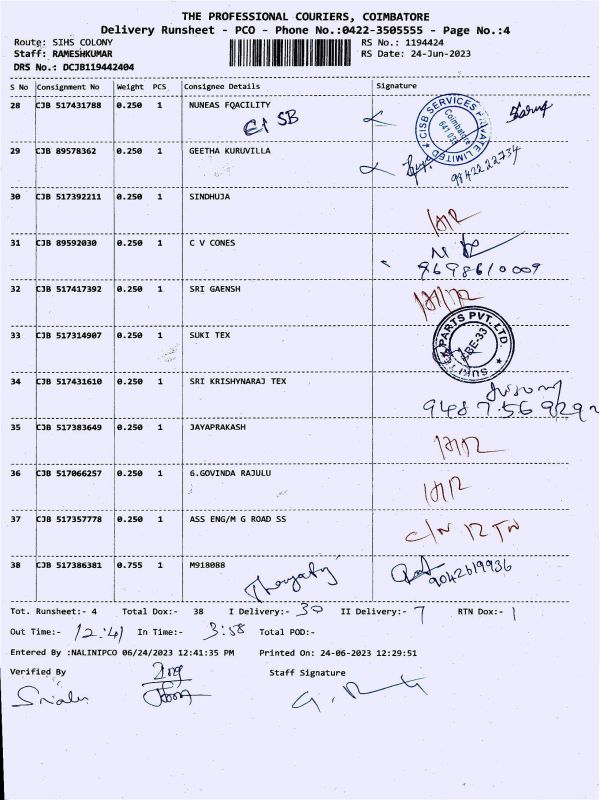 THE PROFESSIONAL COURIERS, COIMBATORE
Delivery Runsheet - PCO - Phone No.:0422-3505555 - Page No.:4
Route: SIHS COLONY RS No.: 1194424
Staff: RAMESHKUMAR RS Date: 24-Jun-2023
DRS No.: DCJB119442404
S No Consignment No Weight PCS Consignee Details Signature
28 CJB 517431788 0.250 1 NUNEAS FQACILITY
SB
CISB SERVICES PRIVATE LIMITED
Coimbatore
29 CJB 89578362 0.250 1 GEETHA KURUVILLA
9942222734
30 CJB 517392211 0.250 1 SINDHUJA
31 CJB 89592030 0.250 1 C V CONES
9698610009
32 CJB 517417392 0.250 1 SRI GAENSH
33 CJB 517314907 0.250 1 SUKI TEX
PARTS PVT. LTD.
34 CJB 517431610 0.250 1 SRI KRISHYNARAJ TEX
35 CJB 517383649 0.250 1 JAYAPRAKASH
36 CJB 517066257 0.250 1 6.GOVINDA RAJULU
37 CJB 517357778 0.250 1 ASS ENG/M G ROAD SS
C/N 12 TN
38 CJB 517386381 0.755 1 M918088
9042619936
Tot. Runsheet:- 4 Total Dox:- 38 I Delivery:- 30 II Delivery:- 7 RTN Dox:- 1
Out Time:- 12:41 In Time:- 3:58 Total POD:-
Entered By :NALINIPCO 06/24/2023 12:41:35 PM Printed On: 24-06-2023 12:29:51
Verified By Staff Signature